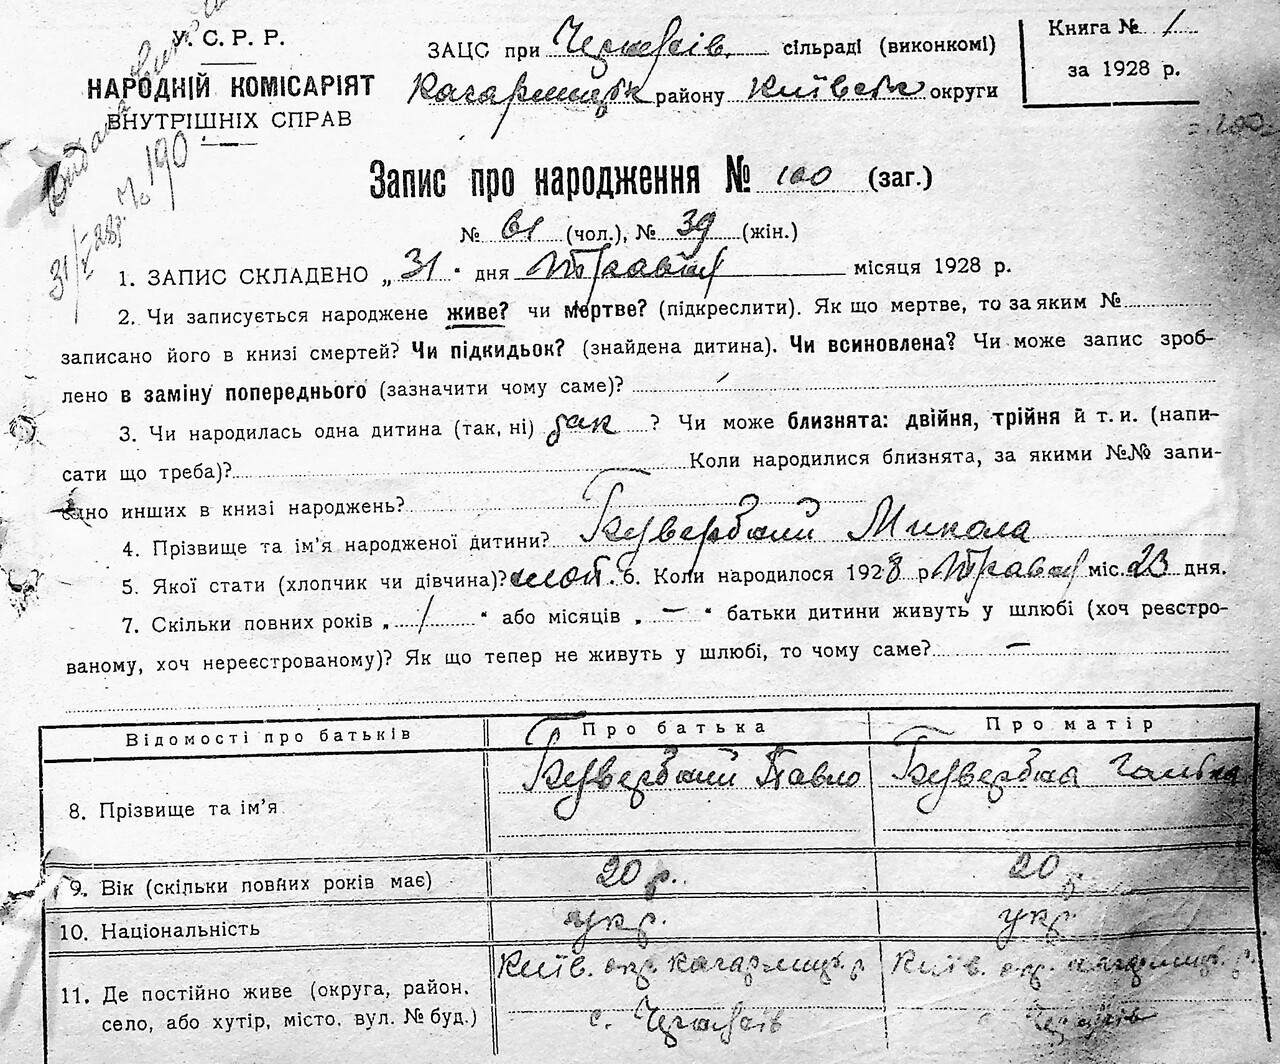 У. С. Р. Р.
НАРОДНІЙ КОМІСАРІЯТ
ВНУТРІШНІХ СПРАВ
ЗАЦС при сільраді (виконкомі)
Кагарлицьк району Київськ округи
Книга № 1
за 1928 р.
31/V 28 р. № 190
Запис про народження № 100 (заг.)
№ 61 (чол.), № 39 (жін.)
1. ЗАПИС СКЛАДЕНО „ 31 " дня Травня місяця 1928 р.
2. Чи записується народжене живе? чи мертве? (підкреслити). Як що мертве, то за яким №
записано його в книзі смертей? Чи підкидьок? (знайдена дитина). Чи всиновлена? Чи може запис зроб-
лено в заміну попереднього (зазначити чому саме)?
3. Чи народилась одна дитина (так, ні) так ? Чи може близнята: двійня, трійня й т. и. (напи-
сати що треба)? Коли народилися близнята, за якими №№ запи-
сано инших в книзі народжень?
4. Прізвище та ім'я народженої дитини? Микола
5. Якої стати (хлопчик чи дівчина)? 6. Коли народилося 1928 р. Травня міс. 23 дня.
7. Скільки повних років „ / " або місяців „ — " батьки дитини живуть у шлюбі (хоч реєстро-
ваному, хоч нереєстрованому)? Як що тепер не живуть у шлюбі, то чому саме? —
Відомості про батьків Про батька Про матір
8. Прізвище та ім'я Павло
9. Вік (скільки повних років має) 20 р. 20 р.
10. Національність укр. укр.
11. Де постійно живе (округа, район, село, або хутір, місто, вул. № буд.) Київ. окр. Кагарлицьк. р. с. Київ. окр. Кагарлицьк. р. с.